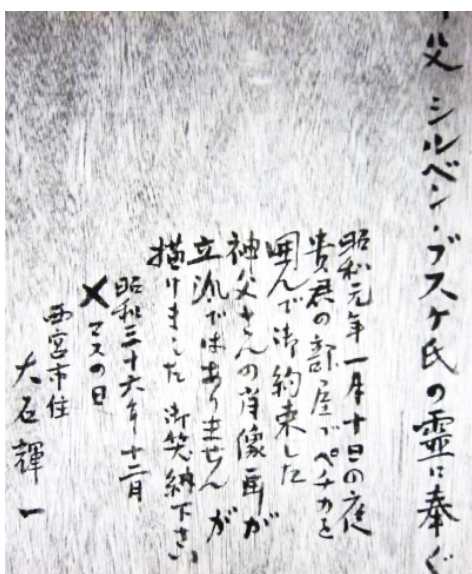 父 シルベン・ブスケ氏の霊に奉ぐ
昭和元年一月十日の
貴君の部屋でペチカを
囲んで御約束した
神父さんの肖像画が
立派ではありません が
描けました 御笑納下さい
昭和三十六年十二月
Xマスの日
西宮市住
大石輝一